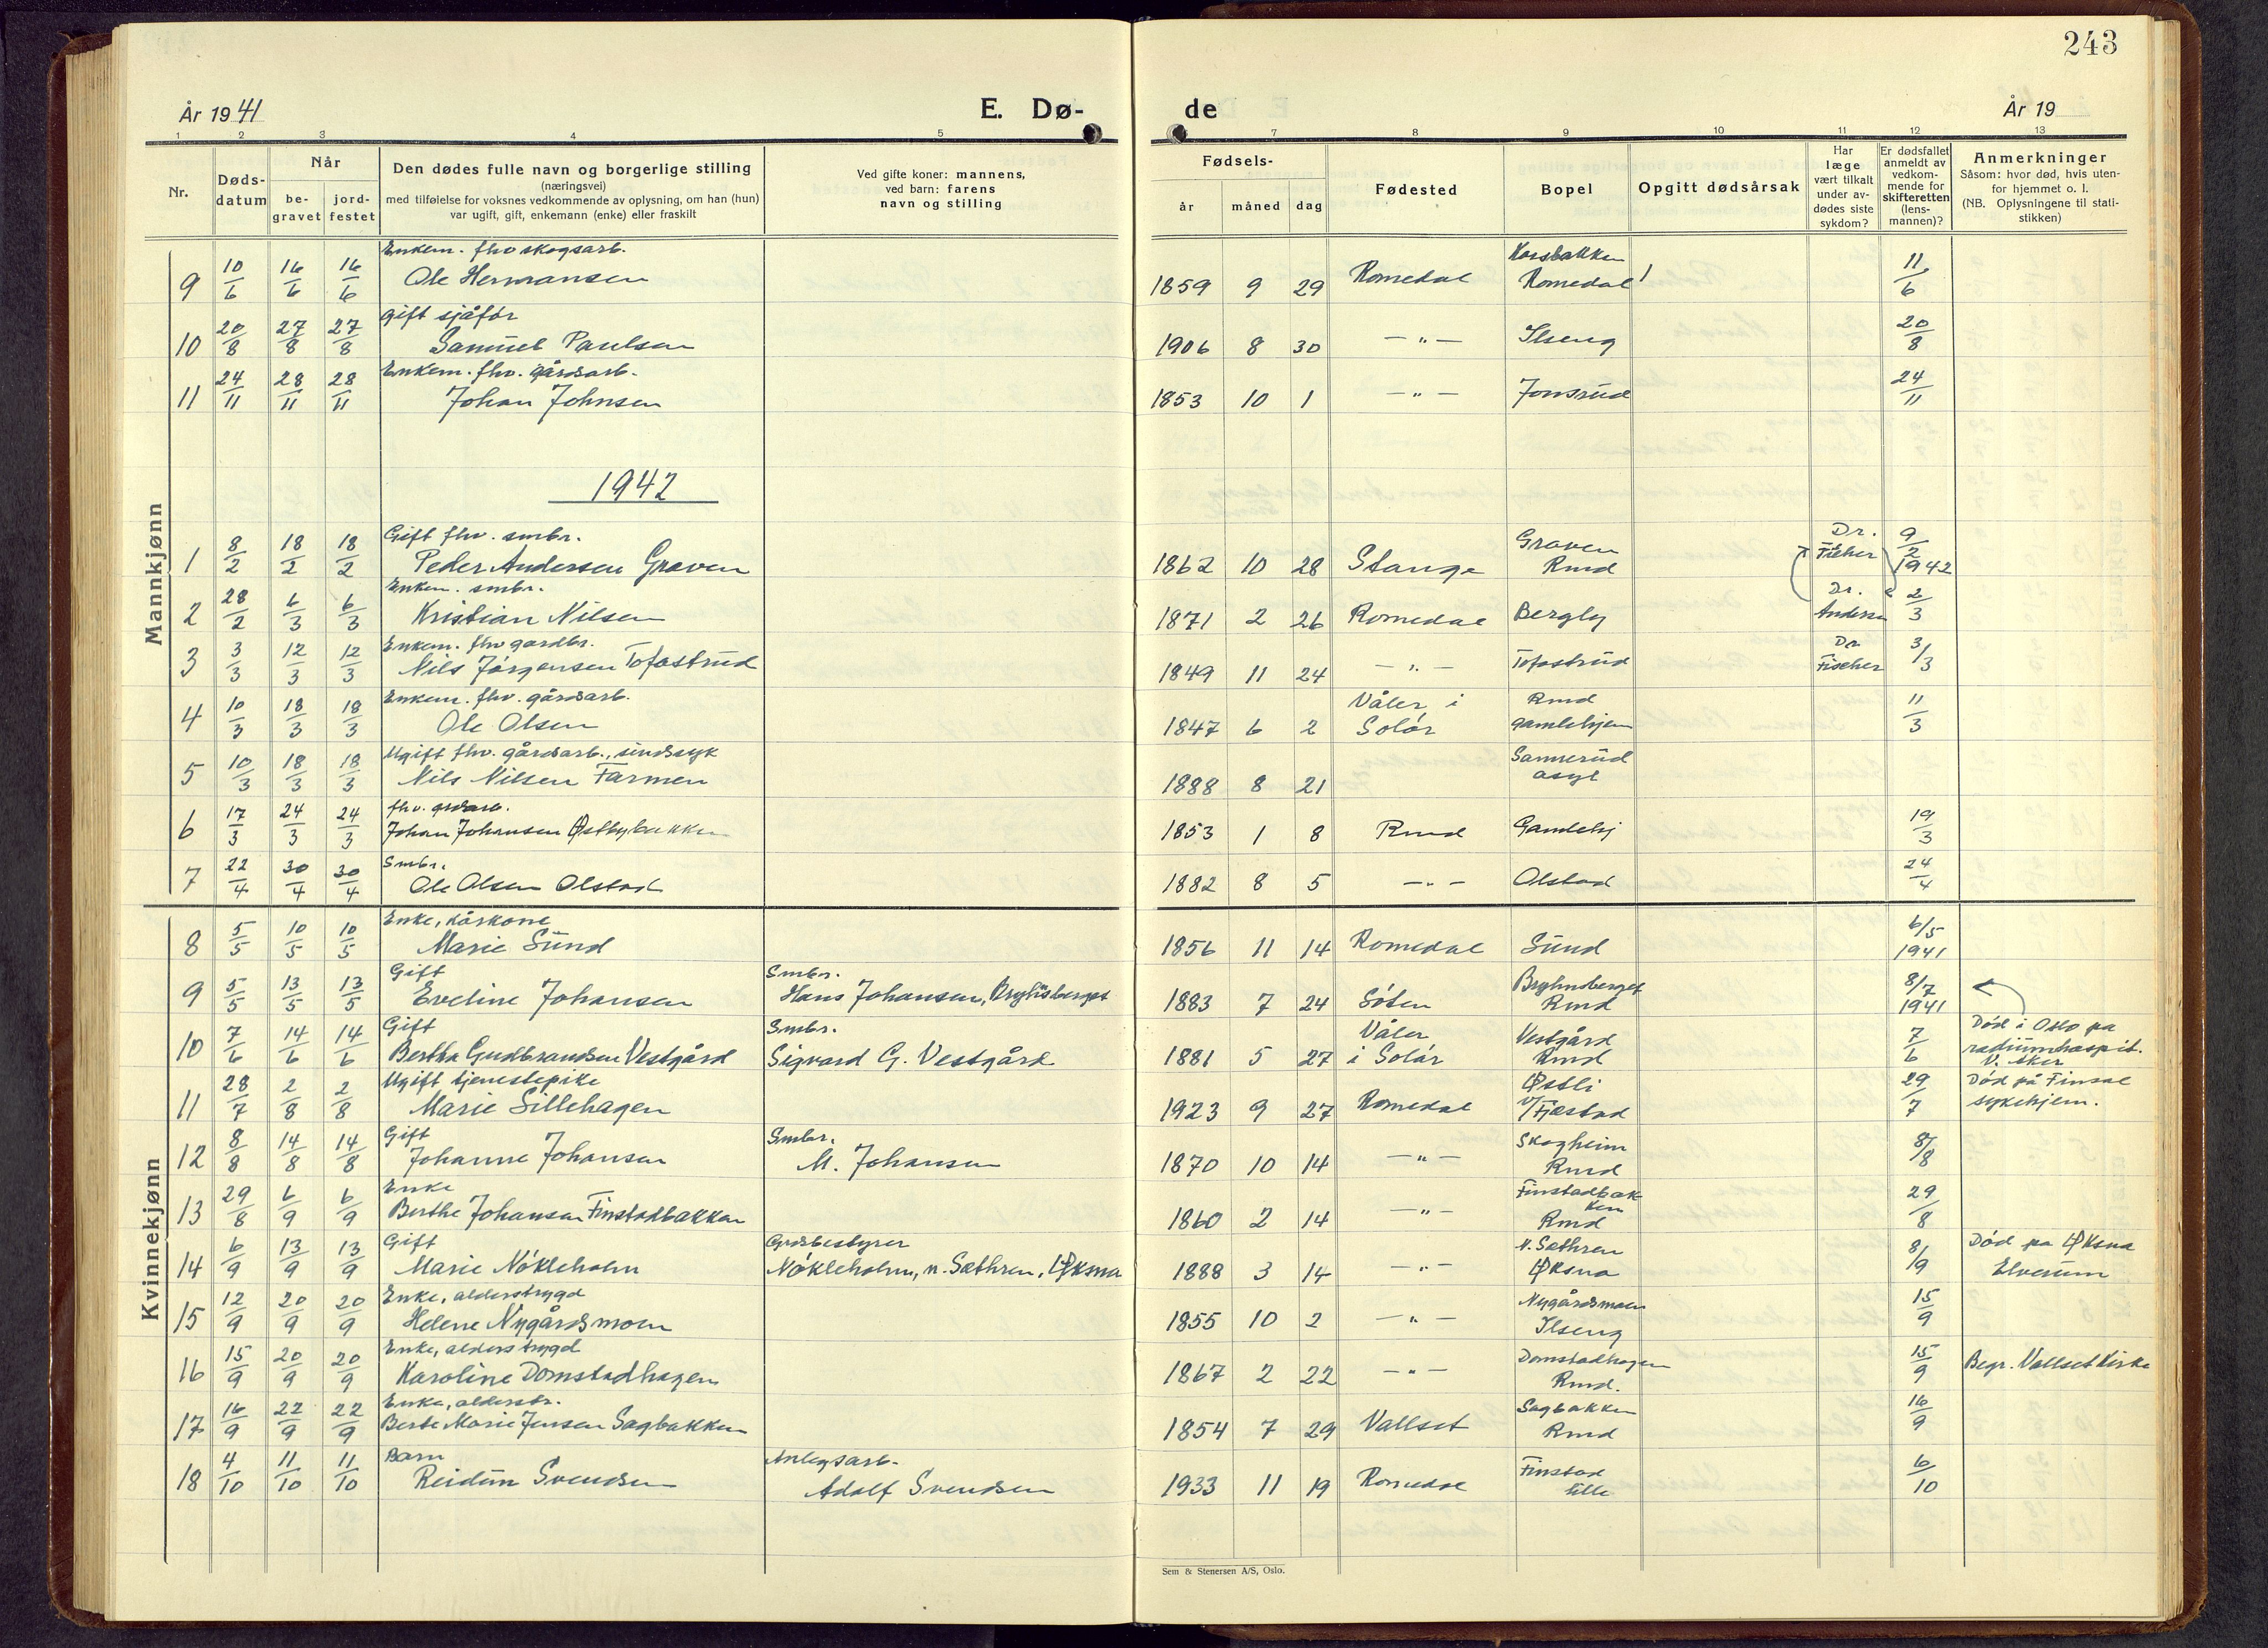 243
År 1941 E. Dø- de År 19
1 2 3 4 5 7 8 9 10 11 12 13
Nr.
Døds-
datum
Når
be-
gravet
jord-
festet
Den dødes fulle navn og borgerlige stilling
(næringsvei)
med tilføielse for voksnes vedkommende av oplysning, om han (hun)
var ugift, gift, enkemann (enke) eller fraskilt
Ved gifte koner: mannens,
ved barn: farens
navn og stilling
Fødsels-
år måned dag
Fødested
Bopel
Opgitt dødsårsak
Har
læge
vært tilkalt
under av-
dødes siste
sykdom?
Er dødsfallet
anmeldt av
vedkom-
mende for
skifteretten
(lens-
mannen)?
Anmerkninger
Såsom: hvor død, hvis uten-
for hjemmet o. l.
(NB. Oplysningene til stati-
stikken)
Mannkjønn
Enkem. fhv skogsarb. Korsbakken
9 10/6 16/6 16/6 Ole Hermansen 1859 9 29 Romedal Romedal 11/6
gift sjåfør
10 20/8 27/8 27/8 Samuel Paulsen 1906 8 30 — " — Ilseng 20/8
Enkem. fhv. gårdsarb.
11 24/11 28/11 28/11 Johan Johnsen 1853 10 1 — " — Jonsrud 24/11
1942
Gift fhv. smbr. Graven Dr.
1 8/2 18/2 18/2 Peder Andersen Graven 1862 10 28 Stange Rmd Fischer 9/2 1942
Enkem. smbr. Dr.
2 28/2 6/3 6/3 Kristian Nilsen 1871 2 26 Romedal Bergly Andersen 2/3
Enkem. fhv gardbr. Dr
3 3/3 12/3 12/3 Nils Jørgensen Tofastrud 1849 11 24 — " — Tofastrud Fischer 3/3
Enkem. fhv. gårdsarb. Våler i Rmd
4 10/3 18/3 18/3 Ole Olsen 1847 6 2 Solør gamlehjem 11/3
Ugift fhv. gårdsarb., sindssyk Sannerud
5 10/3 18/3 18/3 Nils Nilsen Farmen 1888 8 21 asyl
fhv. grdsarb.
6 17/3 24/3 24/3 Johan Johansen Østbybakken 1853 1 8 Rmd Gamlehj 19/3
Smbr.
7 22/4 30/4 30/4 Ole Olsen Olstad 1882 8 5 — " — Olstad 24/4
Kvinnekjønn
Enke, kårkone
8 5/5 10/5 10/5 Marie Sund 1856 11 14 Romedal Sund 6/5 1941
Gift Smbr. Bryhnsberget
9 5/5 13/5 13/5 Eveline Johansen Hans Johansen, Bryhnsberget 1883 7 24 Soten Rmd 8/7 1941
Gift Smbr. Våler Vestgård Død i Oslo på
10 7/6 14/6 14/6 Bertha Gudbrandsen Vestgård Sigvard G. Vestgård 1881 5 27 i Solør Rmd 7/6 radiumhospit.
V. Aker
Ugift tjenestepike Østli Død på Finsal
11 28/7 2/8 2/8 Marie Sillehagen 1923 9 27 Romedal v/Fjæstad 29/7 sykehjem.
Gift Smbr. Skogheim
12 8/8 14/8 14/8 Johanne Johansen M. Johansen 1870 10 14 — " — Rmd 8/8
Enke Finstadbak
ken
13 29/8 6/9 6/9 Berthe Johansen Finstadbakken 1860 2 14 — " — Rmd 29/8
Gift Grdsbestyrer N. Sæthren Død på Øksna
14 6/9 13/9 13/9 Marie Nökleholm Nökleholm, n. Sæthren, Øksna 1888 3 14 — " — Øksna 8/9 Elverum
Enke, alderstrygd Nygårdsmoen
15 12/9 20/9 20/9 Helene Nygårdsmoen 1855 10 2 — " — Ilseng 15/9
Enke, alderstrygd Domstadhagen
16 15/9 20/9 20/9 Karoline Domstadhagen 1867 2 22 — " — Rmd. 15/9 Begr. Vallset kirke
Enke, alderstr. Sagbakken
17 16/9 22/9 22/9 Berte Marie Jensen Sagbakken 1854 7 29 Vallset Rmd 16/9
Barn Anlegsarb. Finstad
18 4/10 11/10 11/10 Reidun Svendsen Adolf Svendsen 1933 11 19 Romedal lille 6/10
Sem & Stenersen A/S, Oslo.